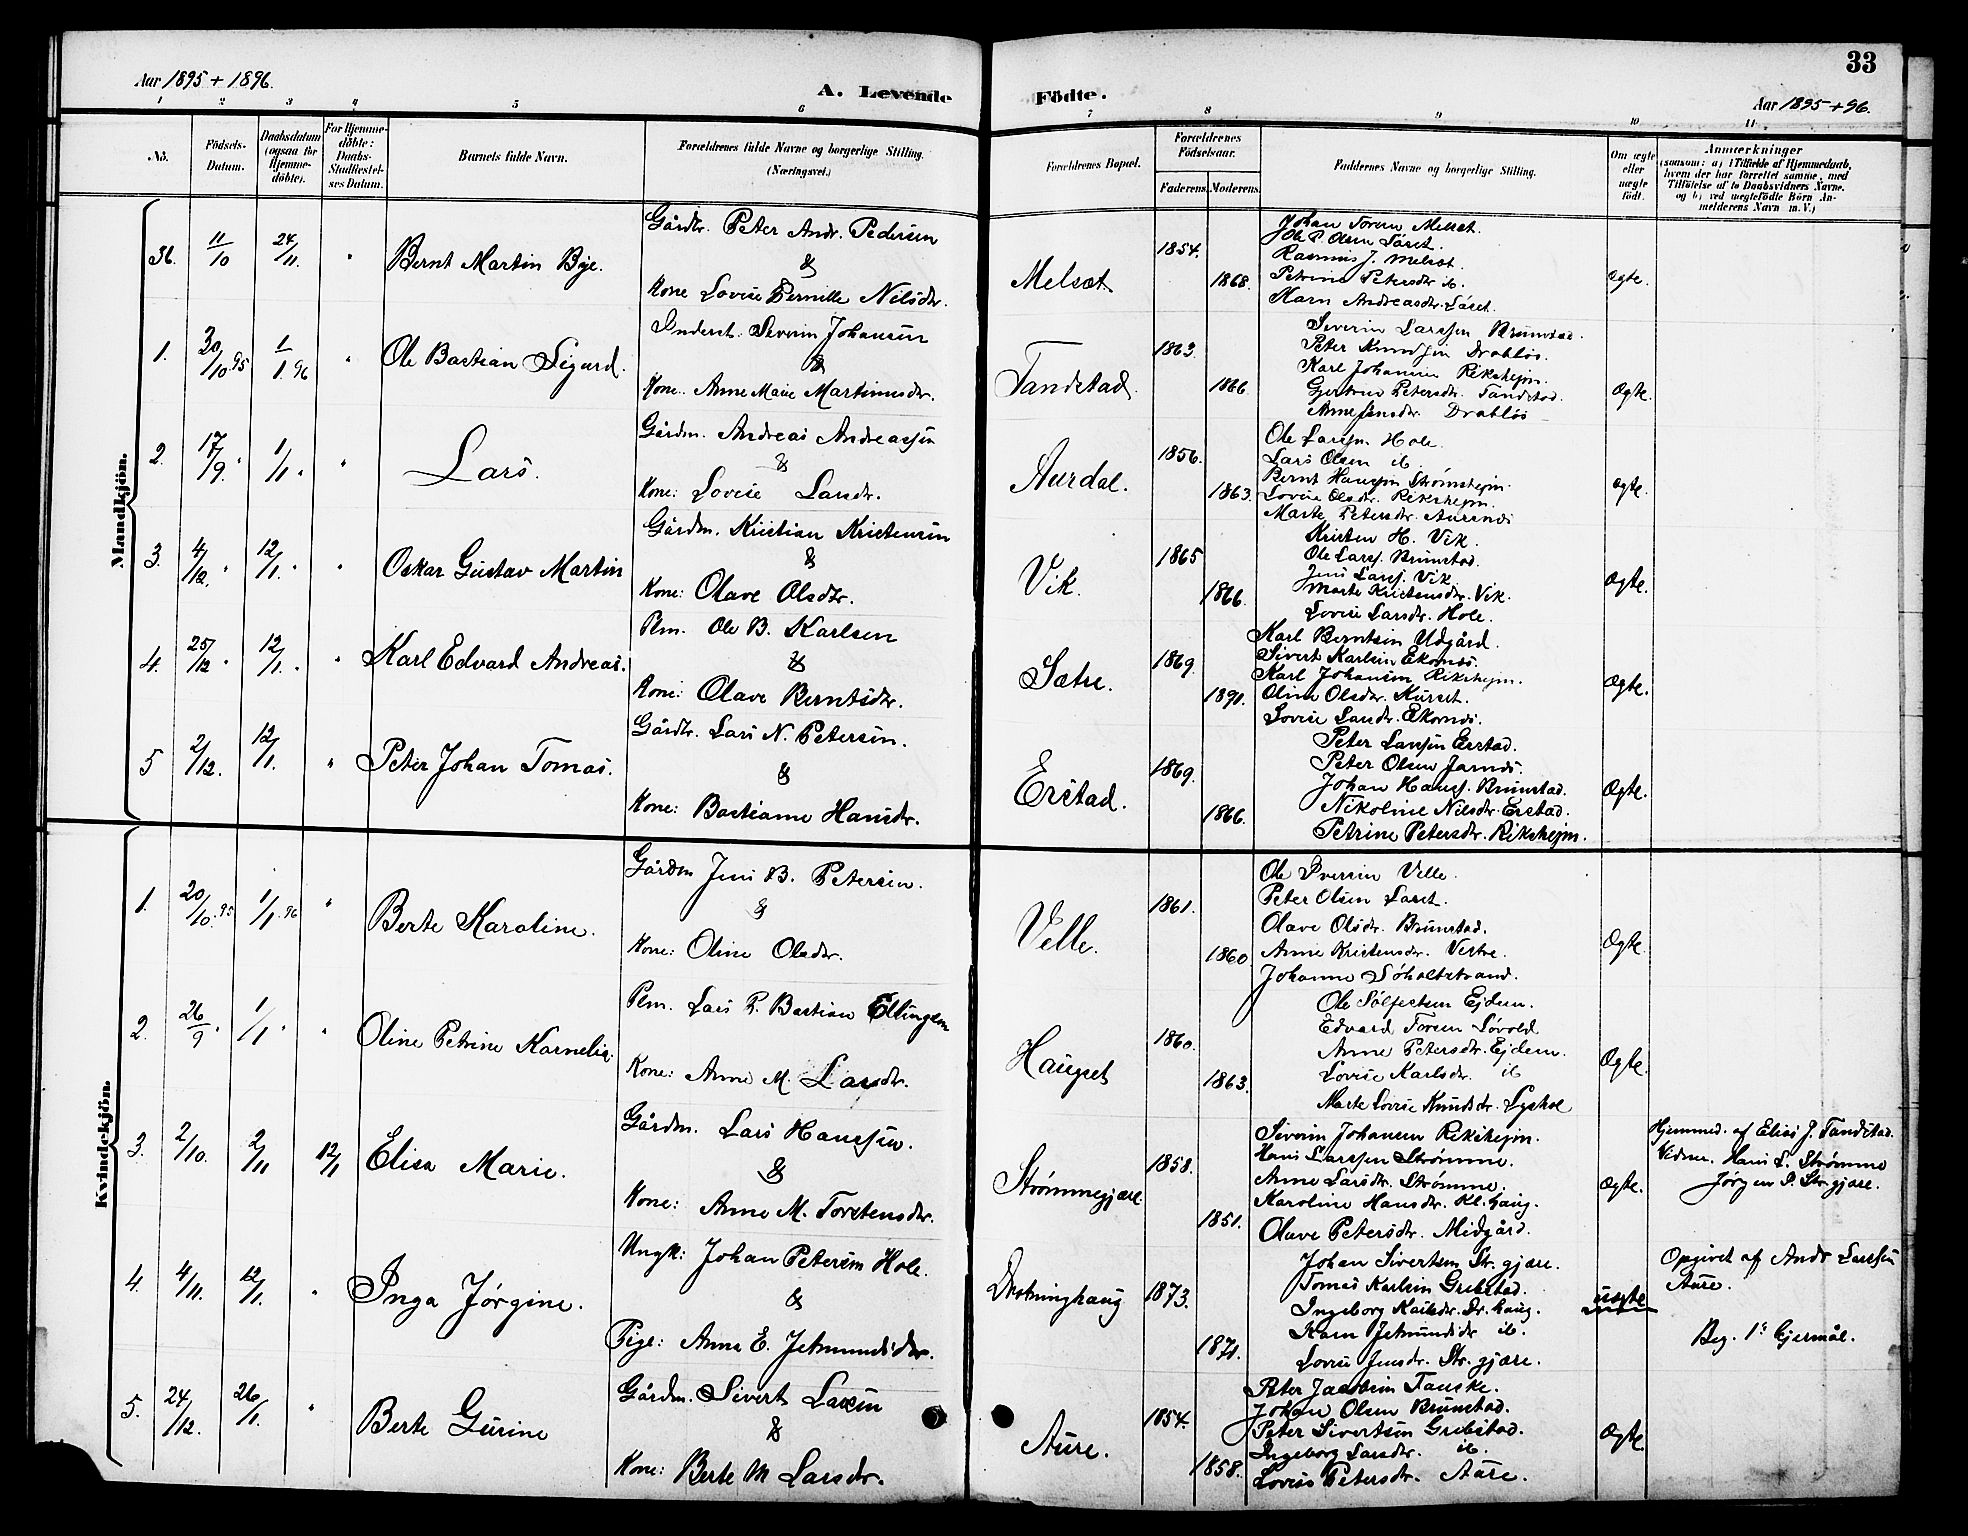 33
Aar 1895 + 1896.
A. Levende Födte.
Aar 1895 + 96.
1 2 3 4 5 6 7 8 9 10 11
No. Födsels-Datum. Daabsdatum (ogsaa for Hjemme-döbte). For Hjemme-döbte: Daabs-Stadfæstelses Datum. Barnets fulde Navn. Forældrenes fulde Navne og borgerlige Stilling. (Næringsvei.) Forældrenes Bopæl. Forældrenes Födselsaar. Faderens. Moderens. Faddernes Navne og borgerlige Stilling. Om ægte eller uægte födt. Anmærkninger (saasom: a) i Tilfælde af Hjemmedaab, hvem der har forrettet samme, med Tilföielse af to Daabsvidners Navne, og b) ved uægtefödte Börn Anmelderens Navn m. V.)
Mandkjön.
36. 11/10 24/11. " Bernt Martin Bye.
Gårdbr. Peter Andr. Pedersen
&
Kone Lovise Pernille Nilsdtr.
Melsæt 1854. 1868.
Johan Toresen Melsæt.
Ole P. Olsen Løset.
Rasmus J. Melsæt.
Petrine Petersdtr ib.
Karn Andreasdtr. Løset.
Ægte.
1. 30/10 95 1/1. 96 " Ole Bastian Sigurd.
Inderst. Severin Johansen
&
Kone. Anne Marie Martinusdtr.
Tandstad. 1863. 1866.
Severin Larssen Brunstad.
Peter Knudsen Drabløs.
Karl Johansen Riksheim.
Gjertrud Petersdtr. Tandstad.
Anne Jensdtr Drabløs
Ægte.
2. 17/9. " 1/1 " " Lars.
Gårdm. Andreas Andreassen
&
Kone: Lovise Larsdtr.
Aurdal. 1856. 1863.
Ole Larssen Hole.
Lars Olsen ib
Bernt Hanssen Strømshejm.
Lovise Olsdtr. Rikshejm.
Marte Petersdtr. Aurenes
Ægte.
3. 4/12. " 12/1. " " Oskar Gustav Martin
Gårdm. Kristian Kristensen
&
Kone: Olave Olsdtr.
Vik. 1865 1866.
Kristen H. Vik.
Ole Larss. Brunstad.
Jens Larss. Vik
Marte Kristensdtr. Vik.
Lovise Larsdtr. Hole.
Ægte.
4. 25/12 " 12/1. " " Karl Edvard Andreas.
Plm. Ole B. Karlsen
&
Kone: Olave Berntsdtr.
Sætre. 1869. 1871.
Karl Berntsen Udgård.
Sivert Karlsen Ekornes.
Karl Johansen Rikshejm.
Oline Olsdtr. Kurset.
Lovise Larsdtr. Ekornes.
Ægte.
5 2/12. 12/1. " Peter Johan Tomas.
Gårdbr. Lars N. Petersen.
&
Kone: Bastianne Hansdtr.
Erstad. 1869. 1866.
Peter Larssen Erstad.
Peter Olsen Jarnes.
Johan Hanss. Brunstad.
Nikoline Nilsdtr. Erstad.
Petrine Petersdtr. Rikshejm.
Ægte.
Kvindekjön.
1. 20/10. 95 1/1. 96 " Berte Karoline.
Gårdm Jens B. Petersen.
&
Kone: Oline Olsdtr.
Velle. 1861. 1860
Ole Iversen Velle.
Peter Olsen Løset.
Olave Olsdtr. Brunstad.
Anne Kristensdtr. Vestre.
Johanne Søholtstrand.
Ægte
2. 26/9 " 1/1 " " Oline Petrine Kornelia.
Plm. Lars P. Bastian Ellingsen
Kone: Anne M. Larsdtr.
Haugset 1860. 1863.
Ole Edvard Toresen Søvold
Anne Petersdtr. Ejdem.
Lovise Karlsdtr. ib
Marte Lovise Knudsdtr. Lyshol
Ægte.
3. 2/10. 2/11 12/1 Elisa Marie.
Gårdm. Lars Hanssen.
&
Kone: Anne M. Torstensdtr.
Strømmegjære. 1858. 1851.
Severin Johansen Rikshejm.
Hans Larssen Strømme.
Anne Larsdtr. Strømme.
Karoline Hansdtr. Kl. haug.
Olave Petersdtr. Midgård.
Ægte.
Hjemmed. af Elias J. Tandstad.
Vidner. Hans L. Strømme
Jørgen P. Str.gjære.
4. 4/11. 12/1. " Inga Jørgine.
Ungk: Johan Petersen Hole.
&
Pige: Anne E. Jetmundsdtr.
Dr.ninghaug 1873. 1871.
Johan Sivertsen Str. gjære.
Tomas Karlsen Grebstad.
Ingeborg Karlsdr. Dr. haug.
Karn Jetmundsdr ib.
Lovise Jensdr. Str. gjære.
uægte
Opgivet af Andr Larssen
Aure.
Beg. 1s Gjermål.
5. 24/12. 26/1. " Berte Gurine
Gårdm. Sivert Larsen
&
Kone: Berte M Larsdr.
Aure. 1854. 1858.
Peter Jacobsen Tauske.
Johan Olsen Brunstad.
Peter Sivertsen Grebstad.
Ingeborg Larsdtr. ib.
Lovise Petersdtr. Aure.
Ægte.